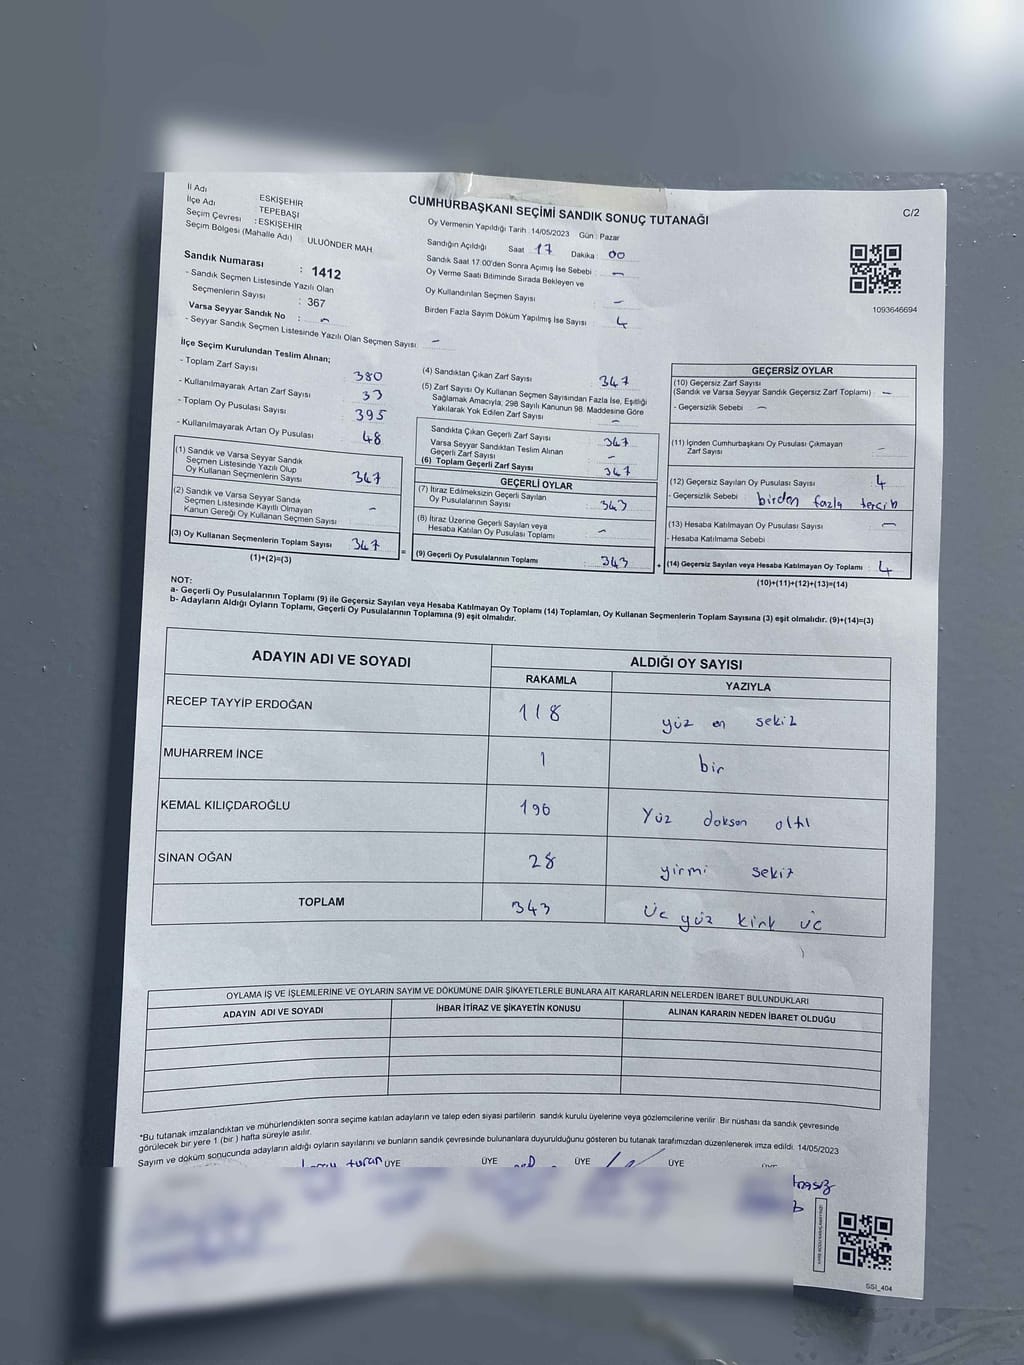 CUMHURBAŞKANI SEÇİMİ SANDIK SONUÇ TUTANAĞI
C/2
İl Adı ESKİŞEHİR
İlçe Adı TEPEBAŞI
Seçim Çevresi : ESKİŞEHİR
Seçim Bölgesi (Mahalle Adı) ULUÖNDER MAH
Sandık Numarası : 1412
- Sandık Seçmen Listesinde Yazılı Olan
Seçmenlerin Sayısı : 367
Varsa Seyyar Sandık No : -
- Seyyar Sandık Seçmen Listesinde Yazılı Olan Seçmen Sayısı -
Oy Vermenin Yapıldığı Tarih : 14/05/2023 Gün : Pazar
Sandığın Açıldığı Saat 17 Dakika : 00
Sandık Saat 17:00'den Sonra Açımış İse Sebebi : -
Oy Verme Saati Bitiminde Sırada Bekleyen ve
Oy Kullandırılan Seçmen Sayısı -
Birden Fazla Sayım Döküm Yapılmış İse Sayısı 4
1093646694
İlçe Seçim Kurulundan Teslim Alınan;
- Toplam Zarf Sayısı 380
- Kullanılmayarak Artan Zarf Sayısı 33
- Toplam Oy Pusulası Sayısı 395
- Kullanılmayarak Artan Oy Pusulası 48
(1) Sandık ve Varsa Seyyar Sandık
Seçmen Listesinde Yazılı Olup
Oy Kullanan Seçmenlerin Sayısı 347
(2) Sandık ve Varsa Seyyar Sandık
Seçmen Listesinde Kayıtlı Olmayan
Kanun Gereği Oy Kullanan Seçmen Sayısı -
(3) Oy Kullanan Seçmenlerin Toplam Sayısı 347
(1)+(2)=(3)
(4) Sandıktan Çıkan Zarf Sayısı 347
(5) Zarf Sayısı Oy Kullanan Seçmen Sayısından Fazla İse, Eşitliği
Sağlamak Amacıyla; 298 Sayılı Kanunun 98. Maddesine Göre
Yakılarak Yok Edilen Zarf Sayısı -
Sandıkta Çıkan Geçerli Zarf Sayısı 347
Varsa Seyyar Sandıktan Teslim Alınan
Geçerli Zarf Sayısı -
(6) Toplam Geçerli Zarf Sayısı 347
GEÇERLİ OYLAR
(7) İtiraz Edilmeksizin Geçerli Sayılan
Oy Pusulalarının Sayısı 343
(8) İtiraz Üzerine Geçerli Sayılan veya
Hesaba Katılan Oy Pusulası Toplamı -
= (9) Geçerli Oy Pusulalarının Toplamı : 343 +
GEÇERSİZ OYLAR
(10) Geçersiz Zarf Sayısı
(Sandık ve Varsa Seyyar Sandık Geçersiz Zarf Toplamı) -
- Geçersizlik Sebebi -
(11) İçinden Cumhurbaşkanı Oy Pusulası Çıkmayan
Zarf Sayısı -
(12) Geçersiz Sayılan Oy Pusulası Sayısı 4
- Geçersizlik Sebebi birden fazla tercih
(13) Hesaba Katılmayan Oy Pusulası Sayısı -
- Hesaba Katılmama Sebebi
(14) Geçersiz Sayılan veya Hesaba Katılmayan Oy Toplamı : 4
(10)+(11)+(12)+(13)=(14)
NOT:
a- Geçerli Oy Pusulalarının Toplamı (9) ile Geçersiz Sayılan veya Hesaba Katılmayan Oy Toplamı (14) Toplamları, Oy Kullanan Seçmenlerin Toplam Sayısına (3) eşit olmalıdır. (9)+(14)=(3)
b- Adayların Aldığı Oyların Toplamı, Geçerli Oy Pusulalarının Toplamına (9) eşit olmalıdır.
ADAYIN ADI VE SOYADI ALDIĞI OY SAYISI
RAKAMLA YAZIYLA
RECEP TAYYİP ERDOĞAN 118 yüz on sekiz
MUHARREM İNCE 1 bir
KEMAL KILIÇDAROĞLU 196 Yüz doksan altı
SİNAN OĞAN 28 yirmi sekiz
TOPLAM 343 Üç yüz kırk üç
OYLAMA İŞ VE İŞLEMLERİNE VE OYLARIN SAYIM VE DÖKÜMÜNE DAİR ŞİKAYETLERLE BUNLARA AİT KARARLARIN NELERDEN İBARET BULUNDUKLARI
ADAYIN ADI VE SOYADI İHBAR İTİRAZ VE ŞİKAYETİN KONUSU ALINAN KARARIN NEDEN İBARET OLDUĞU
*Bu tutanak imzalandıktan ve mühürlendikten sonra seçime katılan adayların ve talep eden siyasi partilerin sandık kurulu üyelerine veya gözlemcilerine verilir. Bir nüshası da sandık çevresinde
görülecek bir yere 1 (bir) hafta süreyle asılır.
Sayım ve döküm sonucunda adayların aldığı oyların sayılarını ve bunların sandık çevresinde bulunanlara duyurulduğunu gösteren bu tutanak tarafımızdan düzenlenerek imza edildi. 14/05/2023
turan ÜYE ÜYE ÜYE ÜYE
SSİ_404